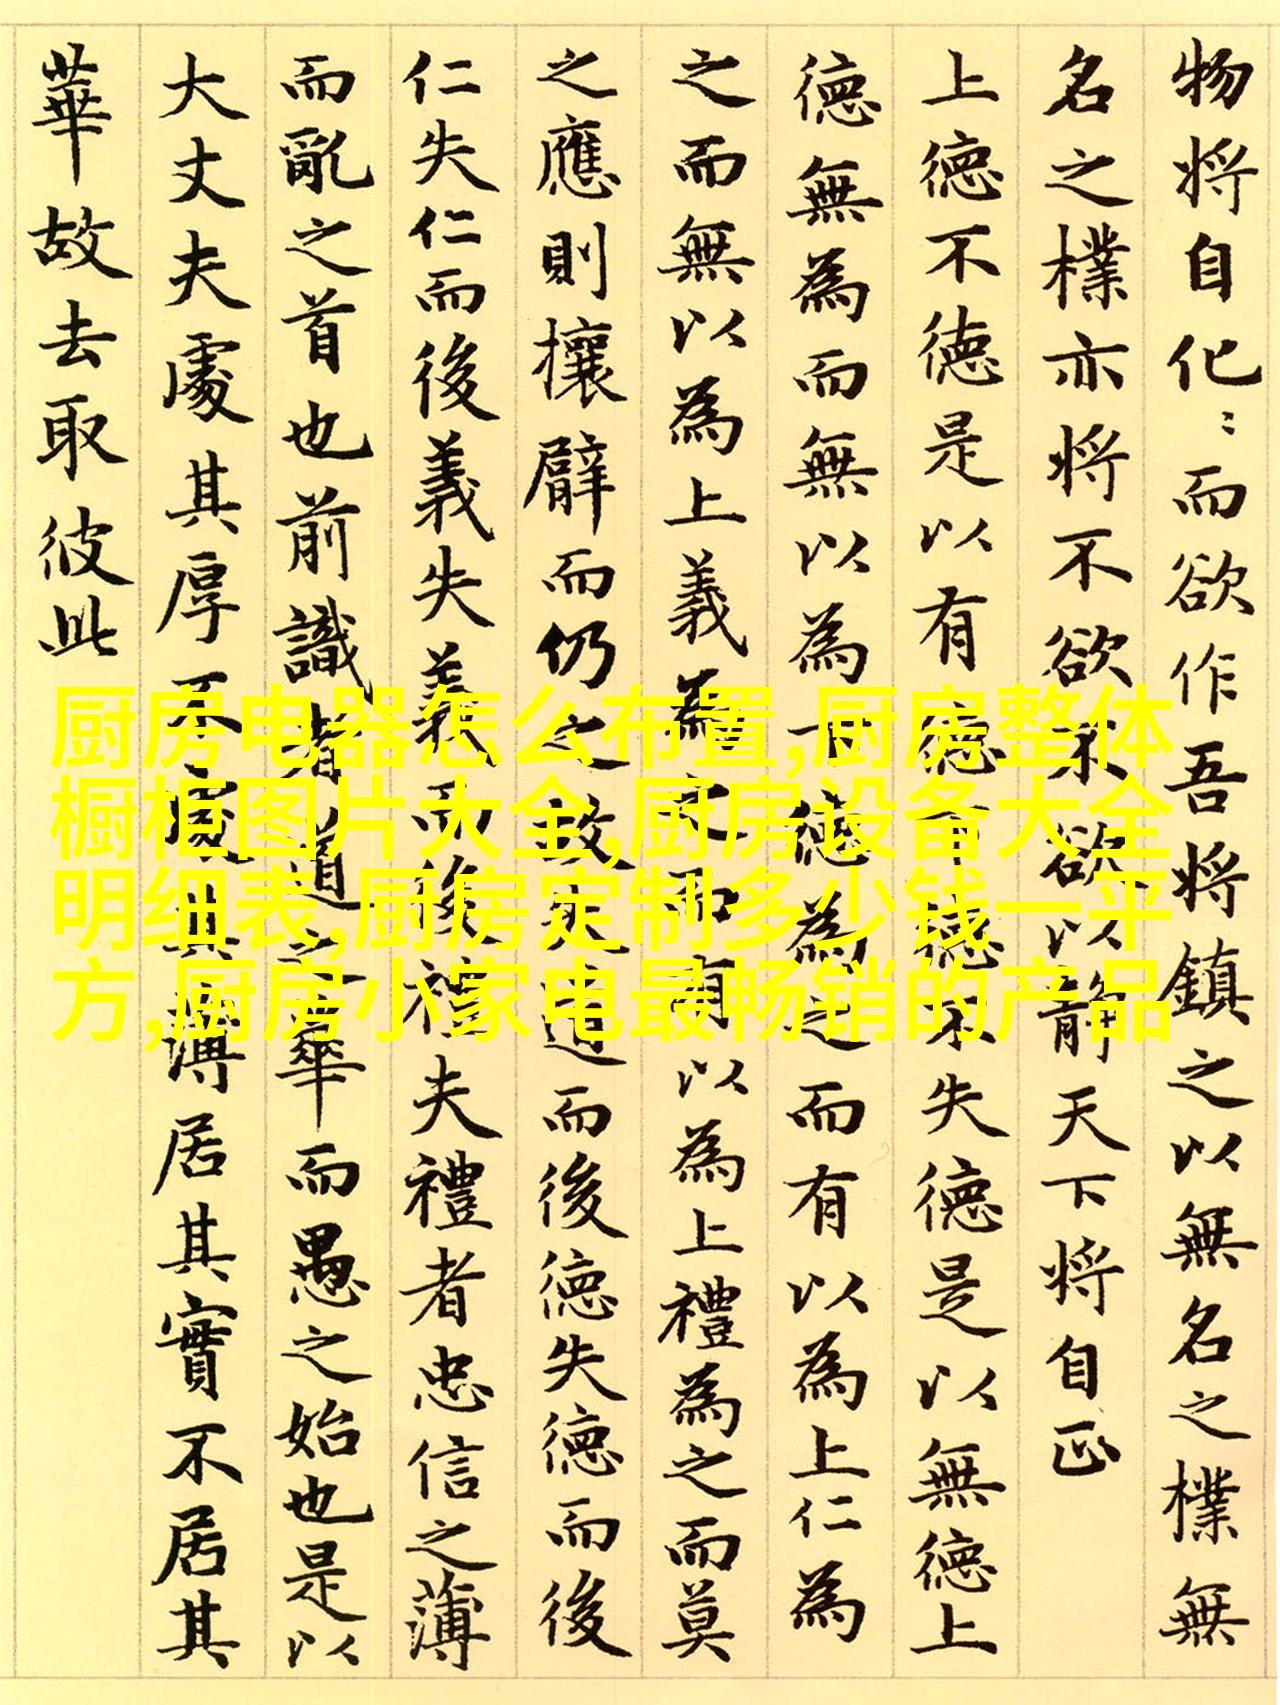 物将自化〻而欲作吾将鎮之以無名之樸無
名之樸亦将不欲不欲以静天下将自正
上徳不徳是以有徳下徳不失徳是以無徳上
徳無為而無以為下徳為之而有以為上仁為
之而無以為上義為之而有以為上禮為之而莫
之應則攘臂而仍之故失道而後徳失徳而後
仁失仁而後義失義而後禮夫禮者忠信之薄
而亂之首也前識者道之華而愚之始也是以
大丈夫處其厚不處其薄居其實不居其
華故去取彼此
厨房电器怎么布置,厨房整体
橱柜图片大全,厨房设备大全
明细表,厨房定制多少钱一平
方,厨房小家电最畅销的产品